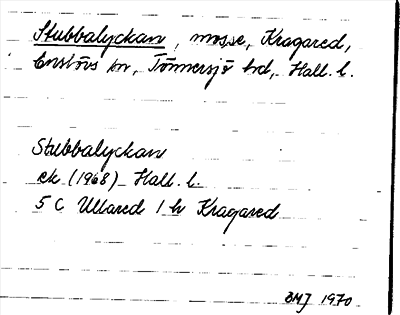 Stubbalyckan, mosse, Kragared,
Enslövs sn, Tönnersjö hd, Hall. l.
Stubbalyckan
ek (1968) Hall. l.
5 C Ullared 1 h Kragared
BMJ 1970